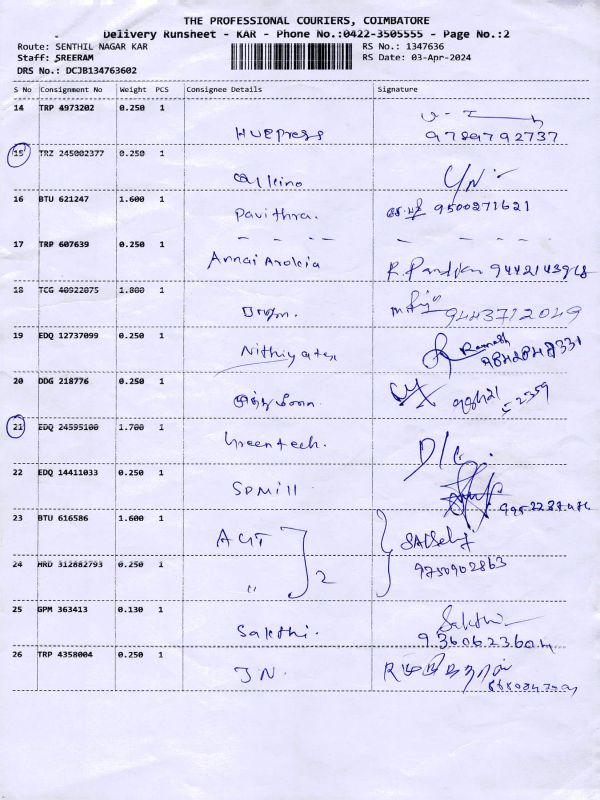 THE PROFESSIONAL COURIERS, COIMBATORE
Delivery Runsheet - KAR - Phone No.:0422-3505555 - Page No.:2
Route: SENTHIL NAGAR KAR RS No.: 1347636
Staff: SREERAM RS Date: 03-Apr-2024
DRS No.: DCJB134763602
S No Consignment No Weight PCS Consignee Details Signature
14 TRP 4973202 0.250 1
HUEpress 9789792737
15 TRZ 245002377 0.250 1
16 BTU 621247 1.600 1
Pavithra. 9500271621
17 TRP 607639 0.250 1
Annai Arokia R. Pandian 9442143968
18 TCG 40922075 1.800 1
9443712049
19 EDQ 12737099 0.250 1
Nithiyaten Ramesh
20 DDG 218776 0.250 1
21 EDQ 24595100 1.700 1
Greentech.
22 EDQ 14411033 0.250 1
SPMill
23 BTU 616586 1.600 1
AGT
24 HRD 312882793 0.250 1
" 2 9750902863
25 GPM 363413 0.130 1 Sakthi
Sakthi. 9360623604
26 TRP 4358004 0.250 1
JN.